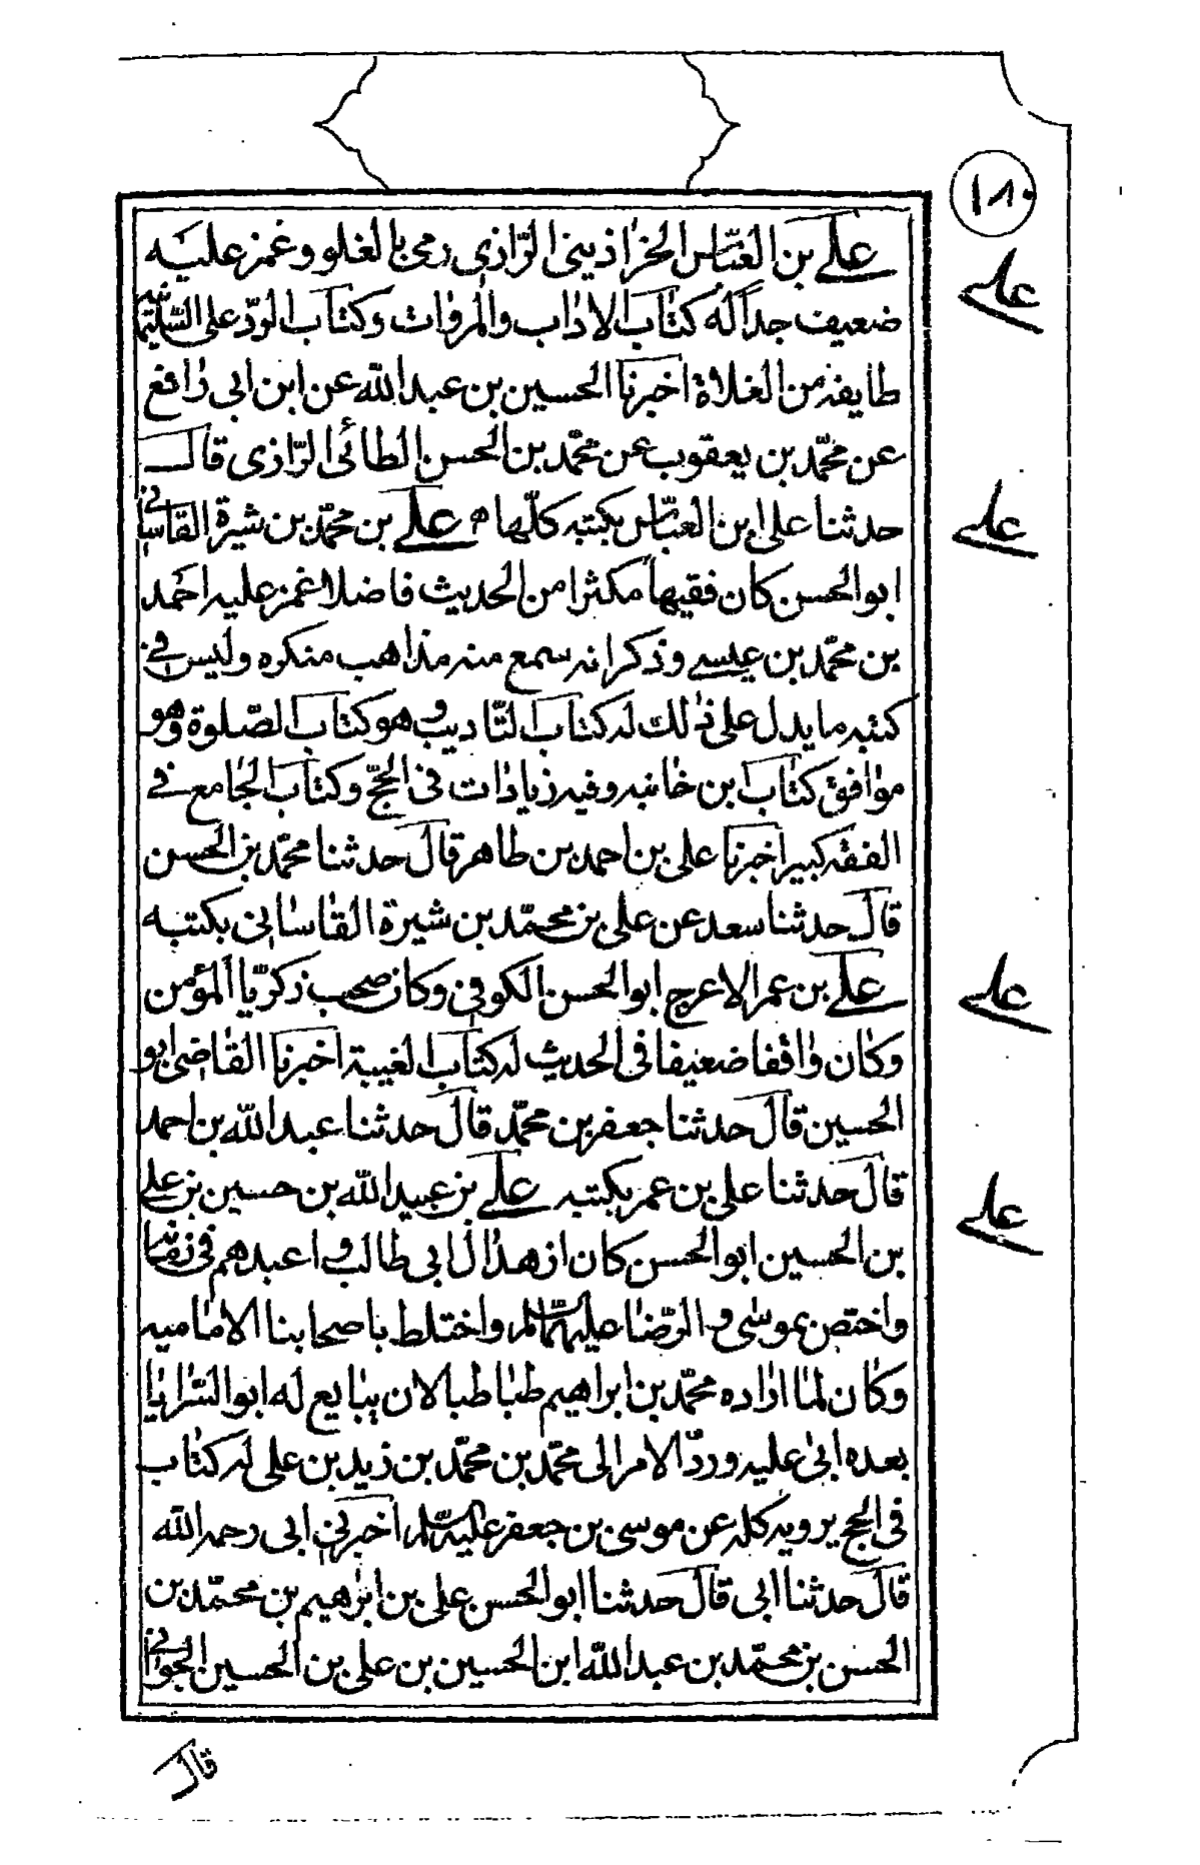 ١٨٠
علي بن العباس الخراذيني الرازي رمي بالغلو وغمز عليه
علي
ضعيف جداً له كتاب الاداب والمروات وكتاب الرد على السلمانية
طايفة من الغلاة اخبرنا الحسين بن عبد الله عن ابن ابي رافع
عن محمّد بن يعقوب عن محمّد بن الحسن الطائي الرّازي قال
حدثنا على ابن العبّاس بكتبه كلّها ه علي بن محمّد بن شيرة القاساني
علي
ابو الحسن كان فقيهاً مكثرا من الحديث فاضلا غمز عليه احمد
بن محمّد بن عيسى وذكر انه سمع منه مذاهب منكره وليس في
كتبه ما يدل على ذلك له كتاب التّاديب وهو كتاب الصّلوة وهو
موافق كتاب ابن خانبه وفيه زيادات في الحجّ وكتاب الجامع في
الفقه كبير اخبرنا على بن احمد بن طاهر قال حدثنا محمّد بن الحسن
قال حدثنا سعد عن على بن محمّد بن شيرة القاساني بكتبه
علي بن عمر الاعرج ابو الحسن الكوفي وكان صحب زكريّا المؤمن
علي
وكان واقفا ضعيفا في الحديث له كتاب الغيبة اخبرنا القاضي ابو
الحسين قال حدثنا جعفر بن محمّد قال حدثنا عبد الله بن احمد
قال حدثنا على بن عمر بكتبه علي بن عبيد الله بن حسين بن علي
علي
بن الحسين ابو الحسن كان ازهد ال ابي طالب واعبدهم في زمانه
واختص بموسى والرّضا عليهما السّلم واختلط باصحابنا الاماميه
وكان لمّا اراده محمّد بن ابراهيم طباطبا لان يبايع له ابو السّرايا
بعده ابى عليه وردّ الامر الى محمّد بن محمّد بن زيد بن على له كتاب
في الحج يرويه كله عن موسى بن جعفر عليه السّلم اخبرني ابي رحمه الله
قال حدثنا ابي قال حدثنا ابو الحسن على بن ابرهيم بن محمّد بن
الحسن بن محمّد بن عبد الله ابن الحسين بن على بن الحسين الجواني
قال